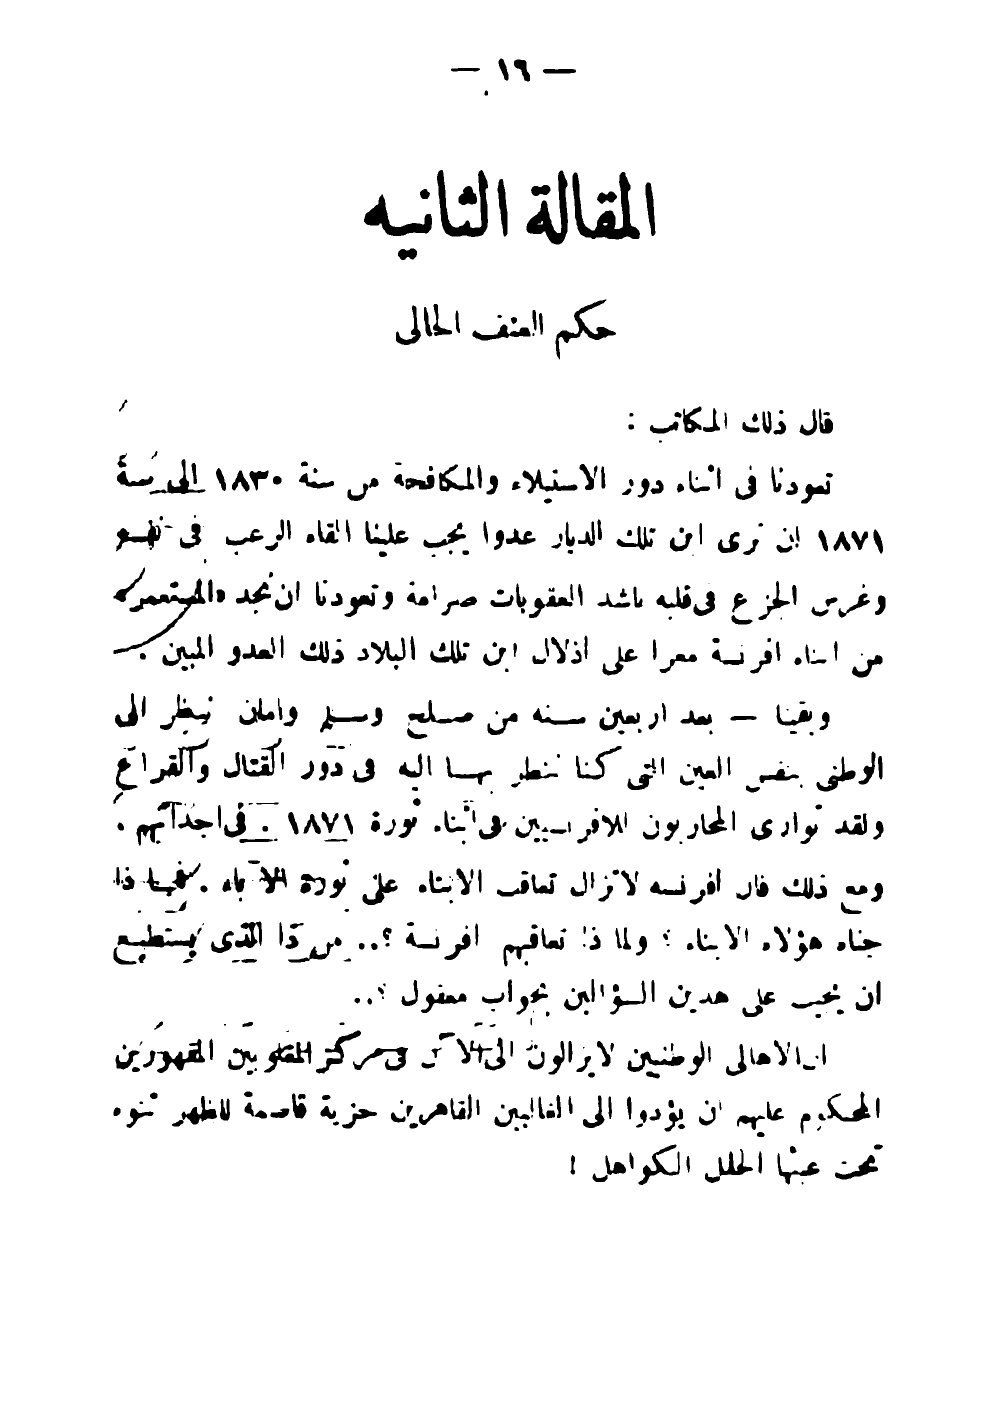 — ١٦ —
المقالة الثانيه
حكم العنف الحالى
قال ذلك المكاتب :
تعودنا فى اثناء دور الاستيلاء والمكافحة من سنة ١٨٣٠ الى سنة
١٨٧١ ان نرى ابن تلك الديار عدوا يجب علينا القاء الرعب فى نفسه
وغرس الجزع فى قلبه باشد العقوبات صرامة وتعودنا ان نجد «المستعمر»
من ابناء افرنسة مصرا على أذلال ابن تلك البلاد ذلك العدو المبين .
وبقينا — بعد اربعين سنه من صلح وسلم وامان ننظر الى
الوطنى بنفس العين التى كنا ننظر بها اليه فى دور القتال والقراع
ولقد توارى المحاربون للافرنسيين فى اثناء ثورة ١٨٧١ . فى اجداثهم .
ومع ذلك فان أفرنسه لاتزال تعاقب الابناء على ثورة الآباء . فماذا
جناه هؤلاء الابناء ؟ ولماذا تعاقبهم افرنسة ؟.. من ذا الذى يستطيع
ان يجيب على هذين السؤالين بجواب معقول ؟..
ان الاهالى الوطنيين لايزالون الى الآن فى مركز المغلوبين المقهورين
المحكوم عليهم ان يؤدوا الى الغالبين القاهرين جزية قاصمة للظهر تنوء
تحت عبئها الجلل الكواهل !